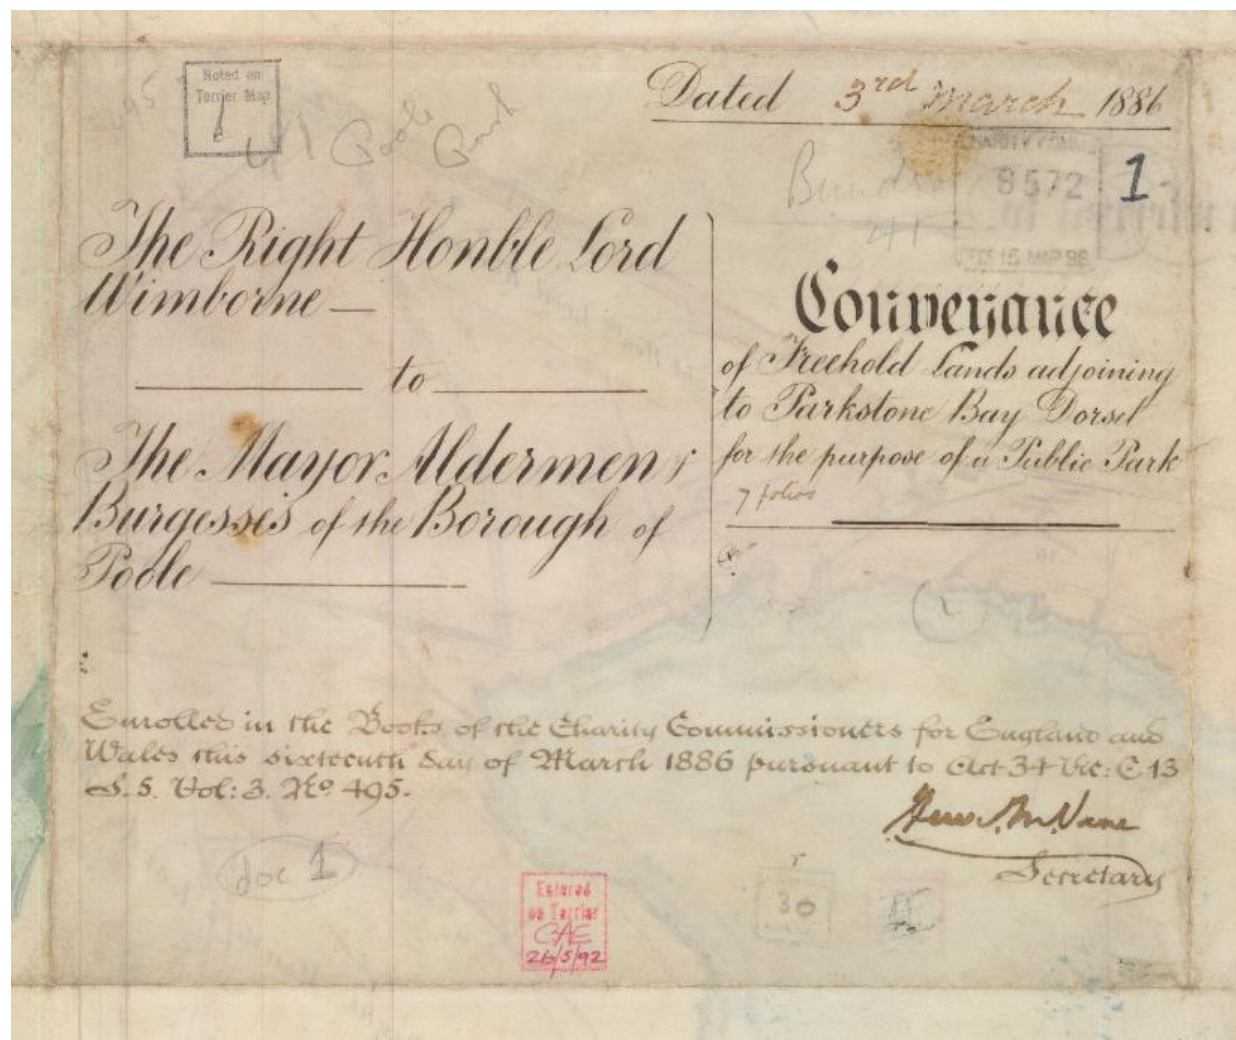 Noted on
Terrier Map
1
41 Poole Park
Dated 3rd March 1886
8572
1
41
15 MAR 86
The Right Honble Lord
Wimborne —
to
The Mayor Aldermen &
Burgesses of the Borough of
Poole
Conveyance
of Freehold Lands adjoining
to Parkstone Bay Dorset
for the purpose of a Public Park
7 folios
Enrolled in the Books of the Charity Commissioners for England and
Wales this sixteenth day of March 1886 pursuant to Act 34 Vic: C 13
S. 5. Vol: 3. No 495.
Secretary
doc 1
Entered
on Terrier
CAE
26/5/92
30